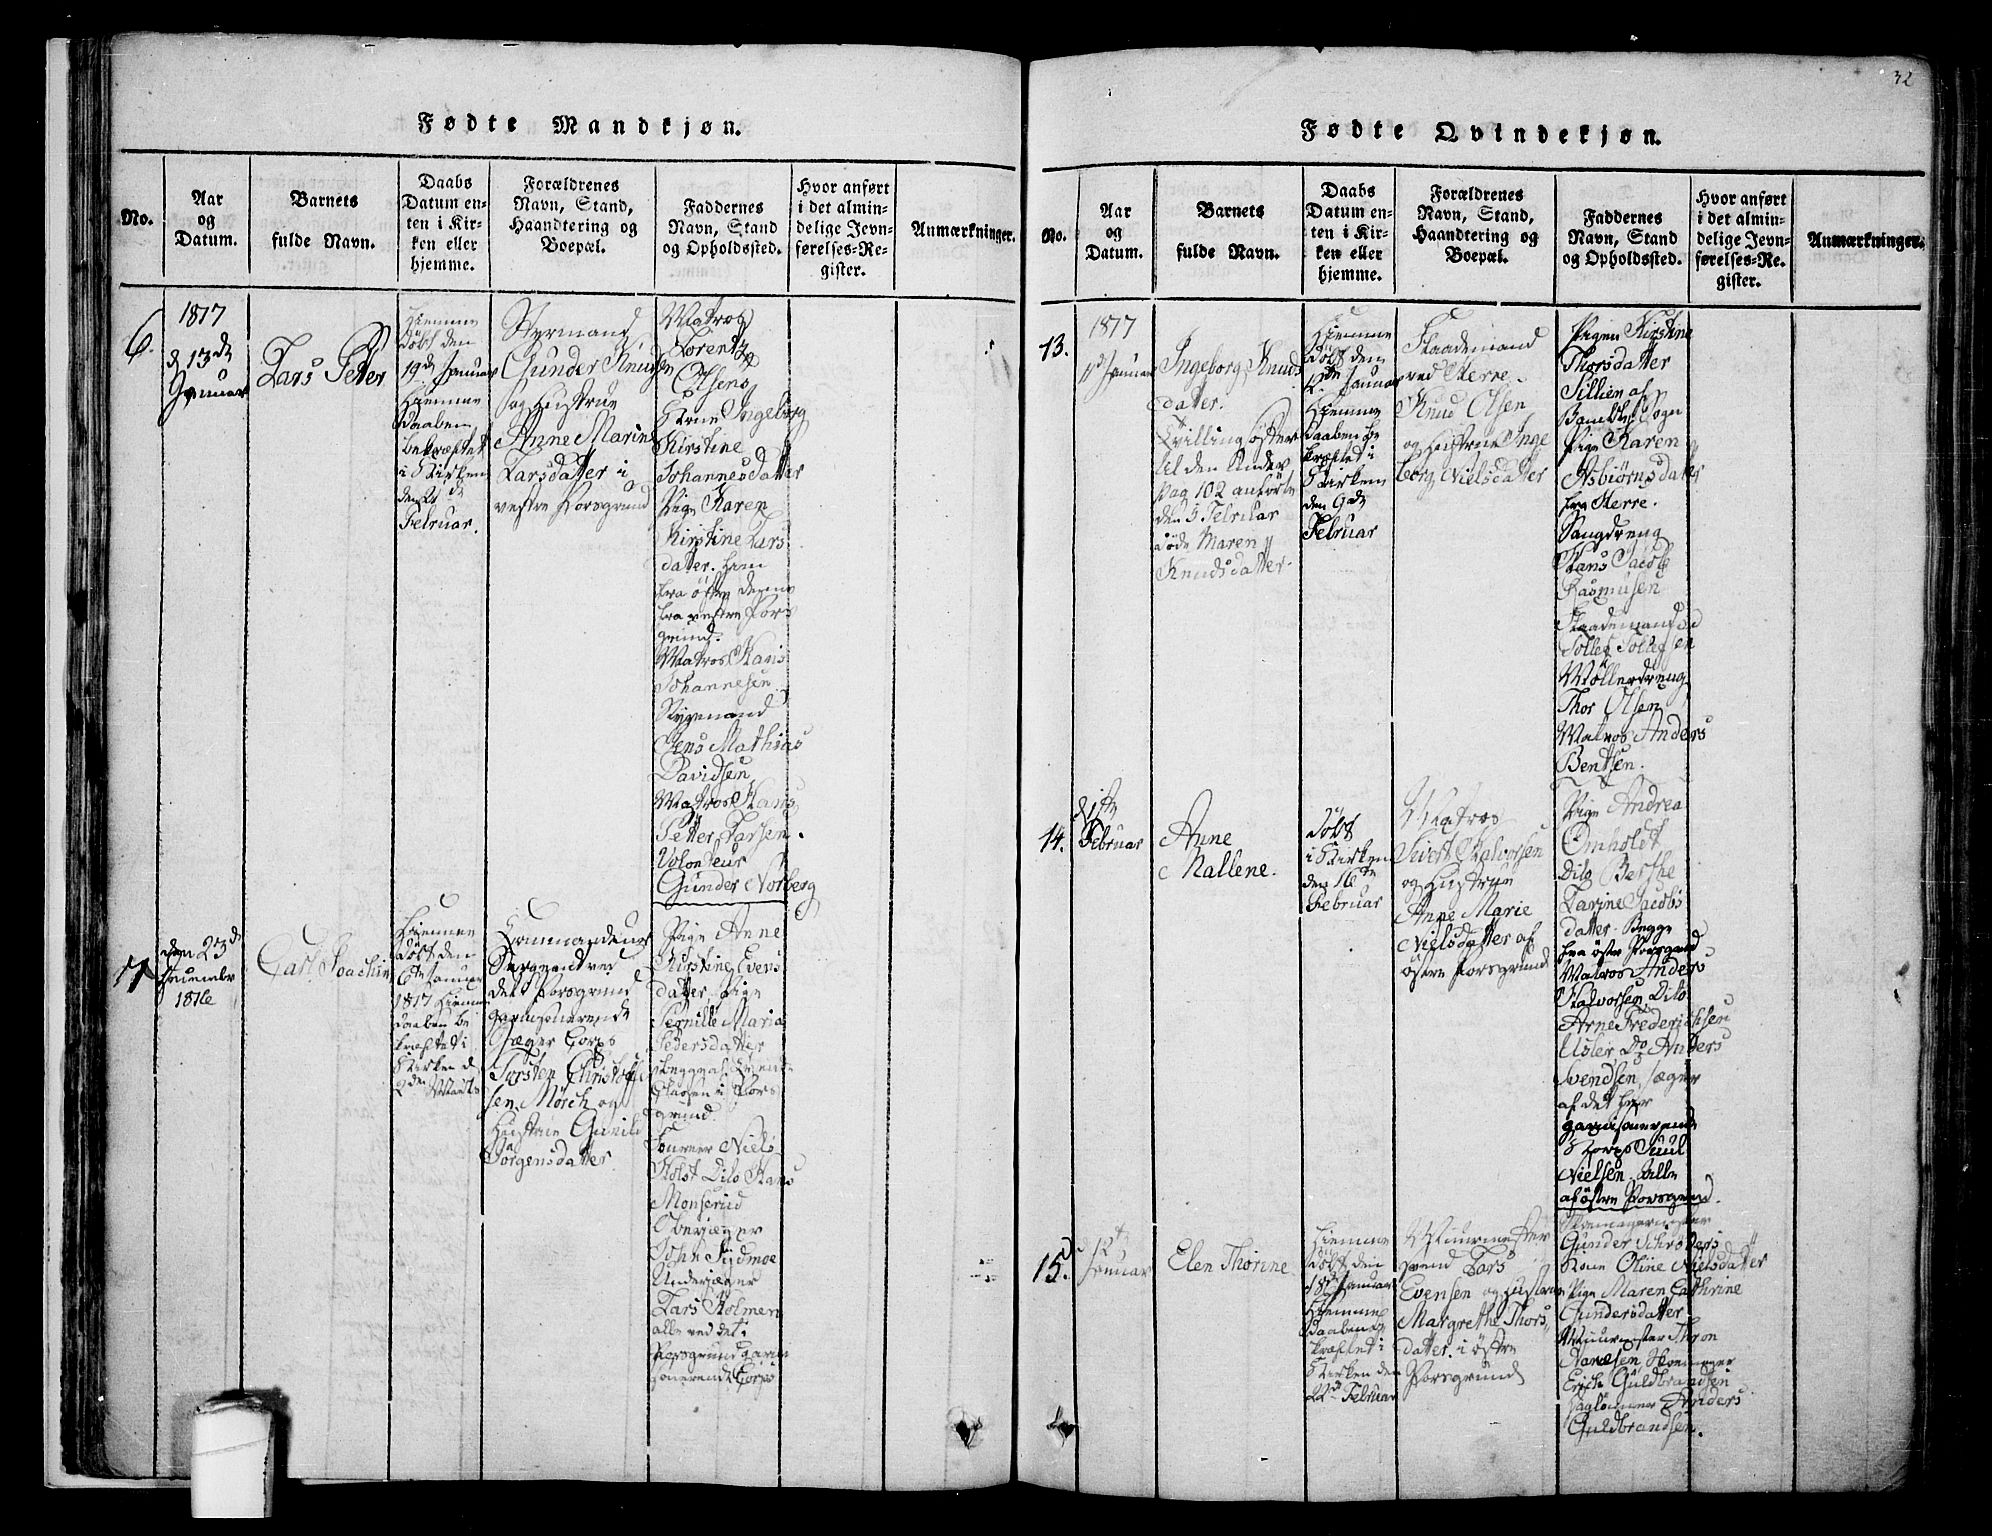 Fødte Mandkjøn.
No.
Aar
og
Datum.
Barnets
fulde Navn.
Daabs
Datum en-
ten i Kir-
ken eller
hjemme.
Forældrenes
Navn, Stand,
Haandtering og
Boepæl.
Faddernes
Navn, Stand
og Opholdssted.
Hvor anført
i det almin-
delige Jevn-
førelses-Re-
gister.
Anmærkninger.
6.
1817
d 13de
Januar
Lars Petter
Hiemme
døbt den
19de Januar
Hiemme
daaben
bekræftet
i Kirken
den
Februar.
Styrmand
Gunder Knudsen
og Hustrue
Anne Marine
Larsdatter i
vestre Porsgrund
Matros
Lorentz
Olsens
Kone Ingeborg
Kirstine
Johannesdatter
Pige Karen
Kirstine Lars
datter.
fra østre denne
fra vestre Pors
grund.
Matros Hans
Johannesen
Styrmand
Jens Mathias
Davidsen
Matros Hans
Petter Larsen.
Volonteur
Gunder Norberg
7
den 23d
1816
Carl Joachim
Hiemme
døbt den
6te Januar
1817 Hiemme
daaben be
kræftet i
Kirken d
2den Marts
Commandeur
Sergeant ved
det Porsgrund
garnisonerende
Jæger Corps
Torsten Christoffe
sen Mørch og
Hustrue Gunild
Jørgensdatter.
Pige Anne
Kirstine Evens
datter, Pige
Pernille Maria
Pedersdatter
i Pors
grund.
Fourier Niels
Holst Dito Hans
Monserud
Oberjæger
John Sydmoe
Underjæger
Lars Holmen
alle ved det
Porsgrund garni
sonerende Corps
32
Fødte Qvindekjøn.
No.
Aar
og
Datum.
Barnets
fulde Navn.
Daabs
Datum en-
ten i Kir-
ken eller
hjemme.
Forældrenes
Navn, Stand,
Haandtering og
Boepæl.
Faddernes
Navn, Stand
og Opholdssted.
Hvor anført
i det almin-
delige Jevn-
førelses-Re-
gister.
Anmærkninger.
13.
1817
11d Januar
Ingeborg Knuds
datter.
Tvilling søster
til den under
pag 102 anførte
den 5 Februar
døde Maren
Knudsdatter.
Hiemme
døbt den
12de Januar
Hiemme
daaben be
kræftet i
Kirken
den 9de
Februar
Strademand
ved Herre.
Knud Olsen
og Hustrue Inge
borg Nielsdatter
Pigen Kirstine
Thorsdatter
Sillien af
Bamble Sogn
Pige Karen
Asbiørnsdatter
fra Herre.
Saugdreng
Hans Jacob
Rasmusen
Strademand
Tollef Tollefsen
Møllerdreng
Thor Olsen
Matros Anders
Bentsen.
14.
d 1ste
Februar
Anne
Mallene.
Døbt
i Kirken
den 16te
Februar
Matros
Sivert Halvorsen
og Hustrue
Anne Marie
Nielsdatter af
østre Porsgrund
Pige Andrea
Omholdt
Dito Berthe
Larine Jacobs
datter Begge
fra østre Porsgrund
Matros Anders
Halvorsen Dito
Arne Frederichsen
Usler Do Anders
Svendsen, Jæger
af det her
garnisonerende
Korps Juul
Nielsen. Alle
af østre Porsgrund.
15.
12te
Januar
Elen Thorine
Hiemme
døbt den
18de Januar
Hiemme
Daaben be
kræftet i
Kirken den
22de Februar
Muurmester
svend Lars
Evensen og Hustrue
Margrethe Thors
datter i østre
Porsgrund
Skomagermester
Gunder Schrøders
Kone Oline Nielsdatter
Pige Maren Cathrine
Gundersdatter
Muurmester Thron
Hansen Skomager
Erich Guldbrandsen
Daglønner Anders
Guldbrandsen.